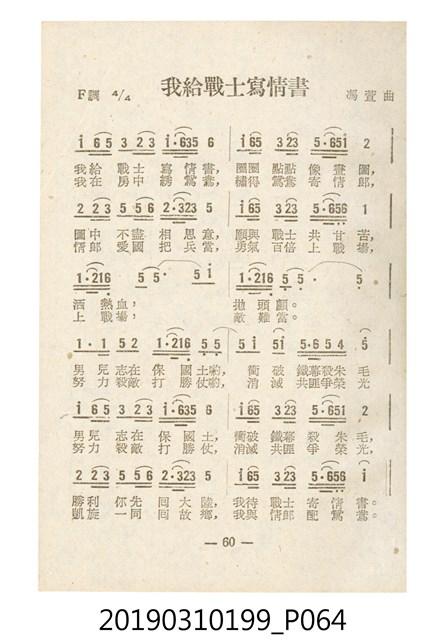 我給戰士寫情書
F調 4/4 馮萱曲
i 6 5 3 2 3 i·635 6 i 65 3 23 5·651 2
我給戰士寫情書，圈圈點點像畫圖，
我在房中綉鴛鴦，繡得鴛鴦寄情郎，
2 2 3 5 5 6 2·323 5 i 65 3 23 5·656 1
圖中不盡相思意，願與戰士共甘苦，
情郎愛國把兵當，勇氣百倍上戰場，
1·216 5 5· 5 i 1·216 5 5· 5
洒熱血，拋頭顱。
上戰場，敵難當。
1·1 5 2 1 6 1 5 5 5 5 i 5 i 5·6 5 4 5
男兒志在保國土喲，衝破鐵幕殺朱毛
努力殺敵打勝仗喲，消滅共匪爭榮光
i 6 5 3 2 3 i·635 6 i 65 3 23 5·651 2
男兒志在保國土，衝破鐵幕殺朱毛，
努力殺敵打勝仗，消滅共匪爭榮光，
2 2 3 5 5 6 2·323 5 i 65 3 23 5·656 i
勝利你先回大陸，我待戰士寄情書。
凱旋一同回故鄉，我與情郎配鴛鴦。
— 60 —
20190310199_P064